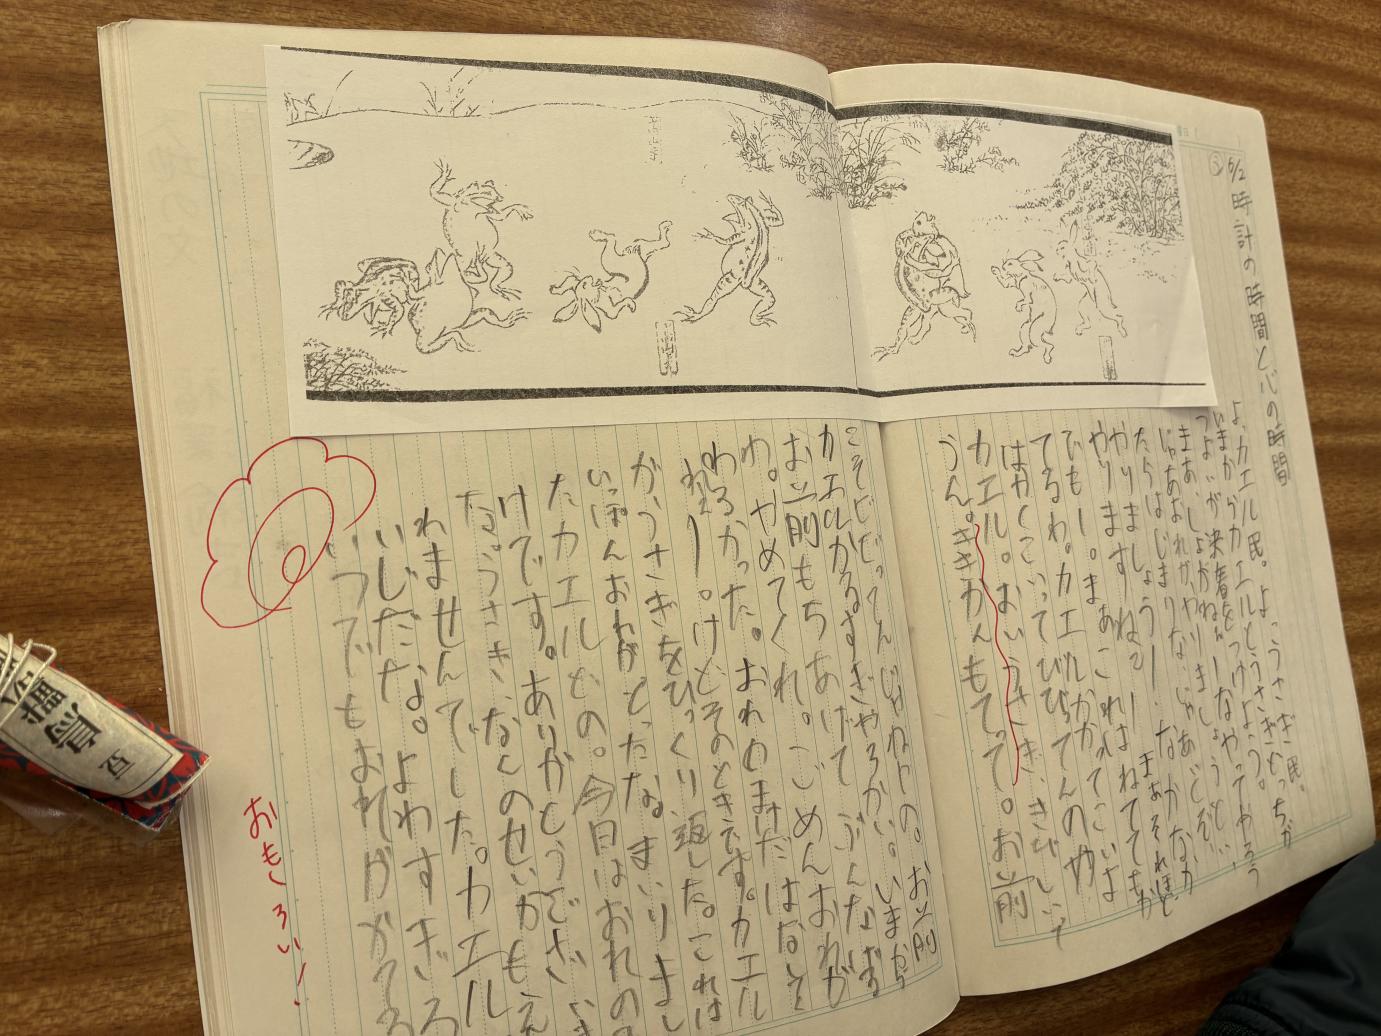 6/2 時計の時間と心の時間
よ、カエル民。よ、うさぎ民。
いまからカエルとうさぎどっちが
つよいか決着をつけよう。
まあ、しょうがねぇーなやってやろう
じゃあおれがやりましょうとい
たらはじまりな。じゃあどうぞ。
やりましょうー。なかなか
やりますねぇ!!はねててもか
でもー。まあこれはまあそれほど
てるわ。カエルかかてこいよ
はやくこいってびびってんのや
カエル。おいうさぎ、きびしいって
うん。ききかんもてって。お前
こそびびってんじゃねーの。お前
カエルかるすぎやろがい。いまから
お前もちあげてぶんなげる
わ。やめてくれ。ごめんおれが
わるかった。おねがいだはなして
くれー。けどそのときです。カエル
がうさぎをひっくり返した。これは
いっぽんおれがとったな。まいりまし
たカエルどの。今日はおれの
けです。ありがとうござい
なうさぎ。なんのせいかもえ
わませんでした。カエル
いじだな。よわすぎる
いつでもおれがかてる
おもしろい!
豆
鳥獣